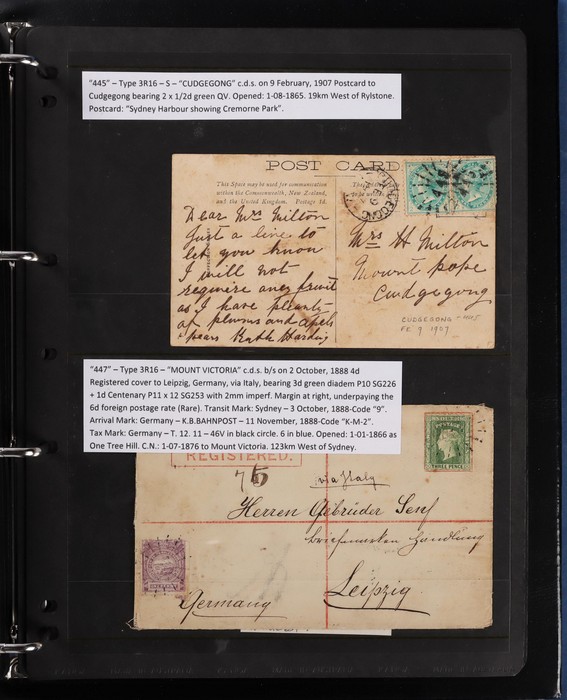 "445" – Type 3R16 – S – "CUDGEGONG" c.d.s. on 9 February, 1907 Postcard to
Cudgegong bearing 2 x 1/2d green QV. Opened: 1-08-1865. 19km West of Rylstone.
Postcard: "Sydney Harbour showing Cremorne Park".
POST CARD
This Space may be used for communication
within the Commonwealth, New Zealand,
and the United Kingdom. Postage 1d.
Dear Mrs Milton
Just a line to
let you know
I will not
require any fruit
as I have plenty
of plums and apels
& pears Kate Harding
Mrs H Milton
Mount pope
Cudgegong
CUDGEGONG
FE 9 1907
"447" – Type 3R16 – "MOUNT VICTORIA" c.d.s. b/s on 2 October, 1888 4d
Registered cover to Leipzig, Germany, via Italy, bearing 3d green diadem P10 SG226
+ 1d Centenary P11 x 12 SG253 with 2mm imperf. Margin at right, underpaying the
6d foreign postage rate (Rare). Transit Mark: Sydney – 3 October, 1888-Code "9".
Arrival Mark: Germany – K.B.BAHNPOST – 11 November, 1888-Code "K-M-2".
Tax Mark: Germany – T. 12. 11 – 46V in black circle. 6 in blue. Opened: 1-01-1866 as
One Tree Hill. C.N.: 1-07-1876 to Mount Victoria. 123km West of Sydney.
REGISTERED.
THREE PENCE
via Italy
Herren Gebrüder Senf
Briefmarken Handlung
Leipzig
Germany